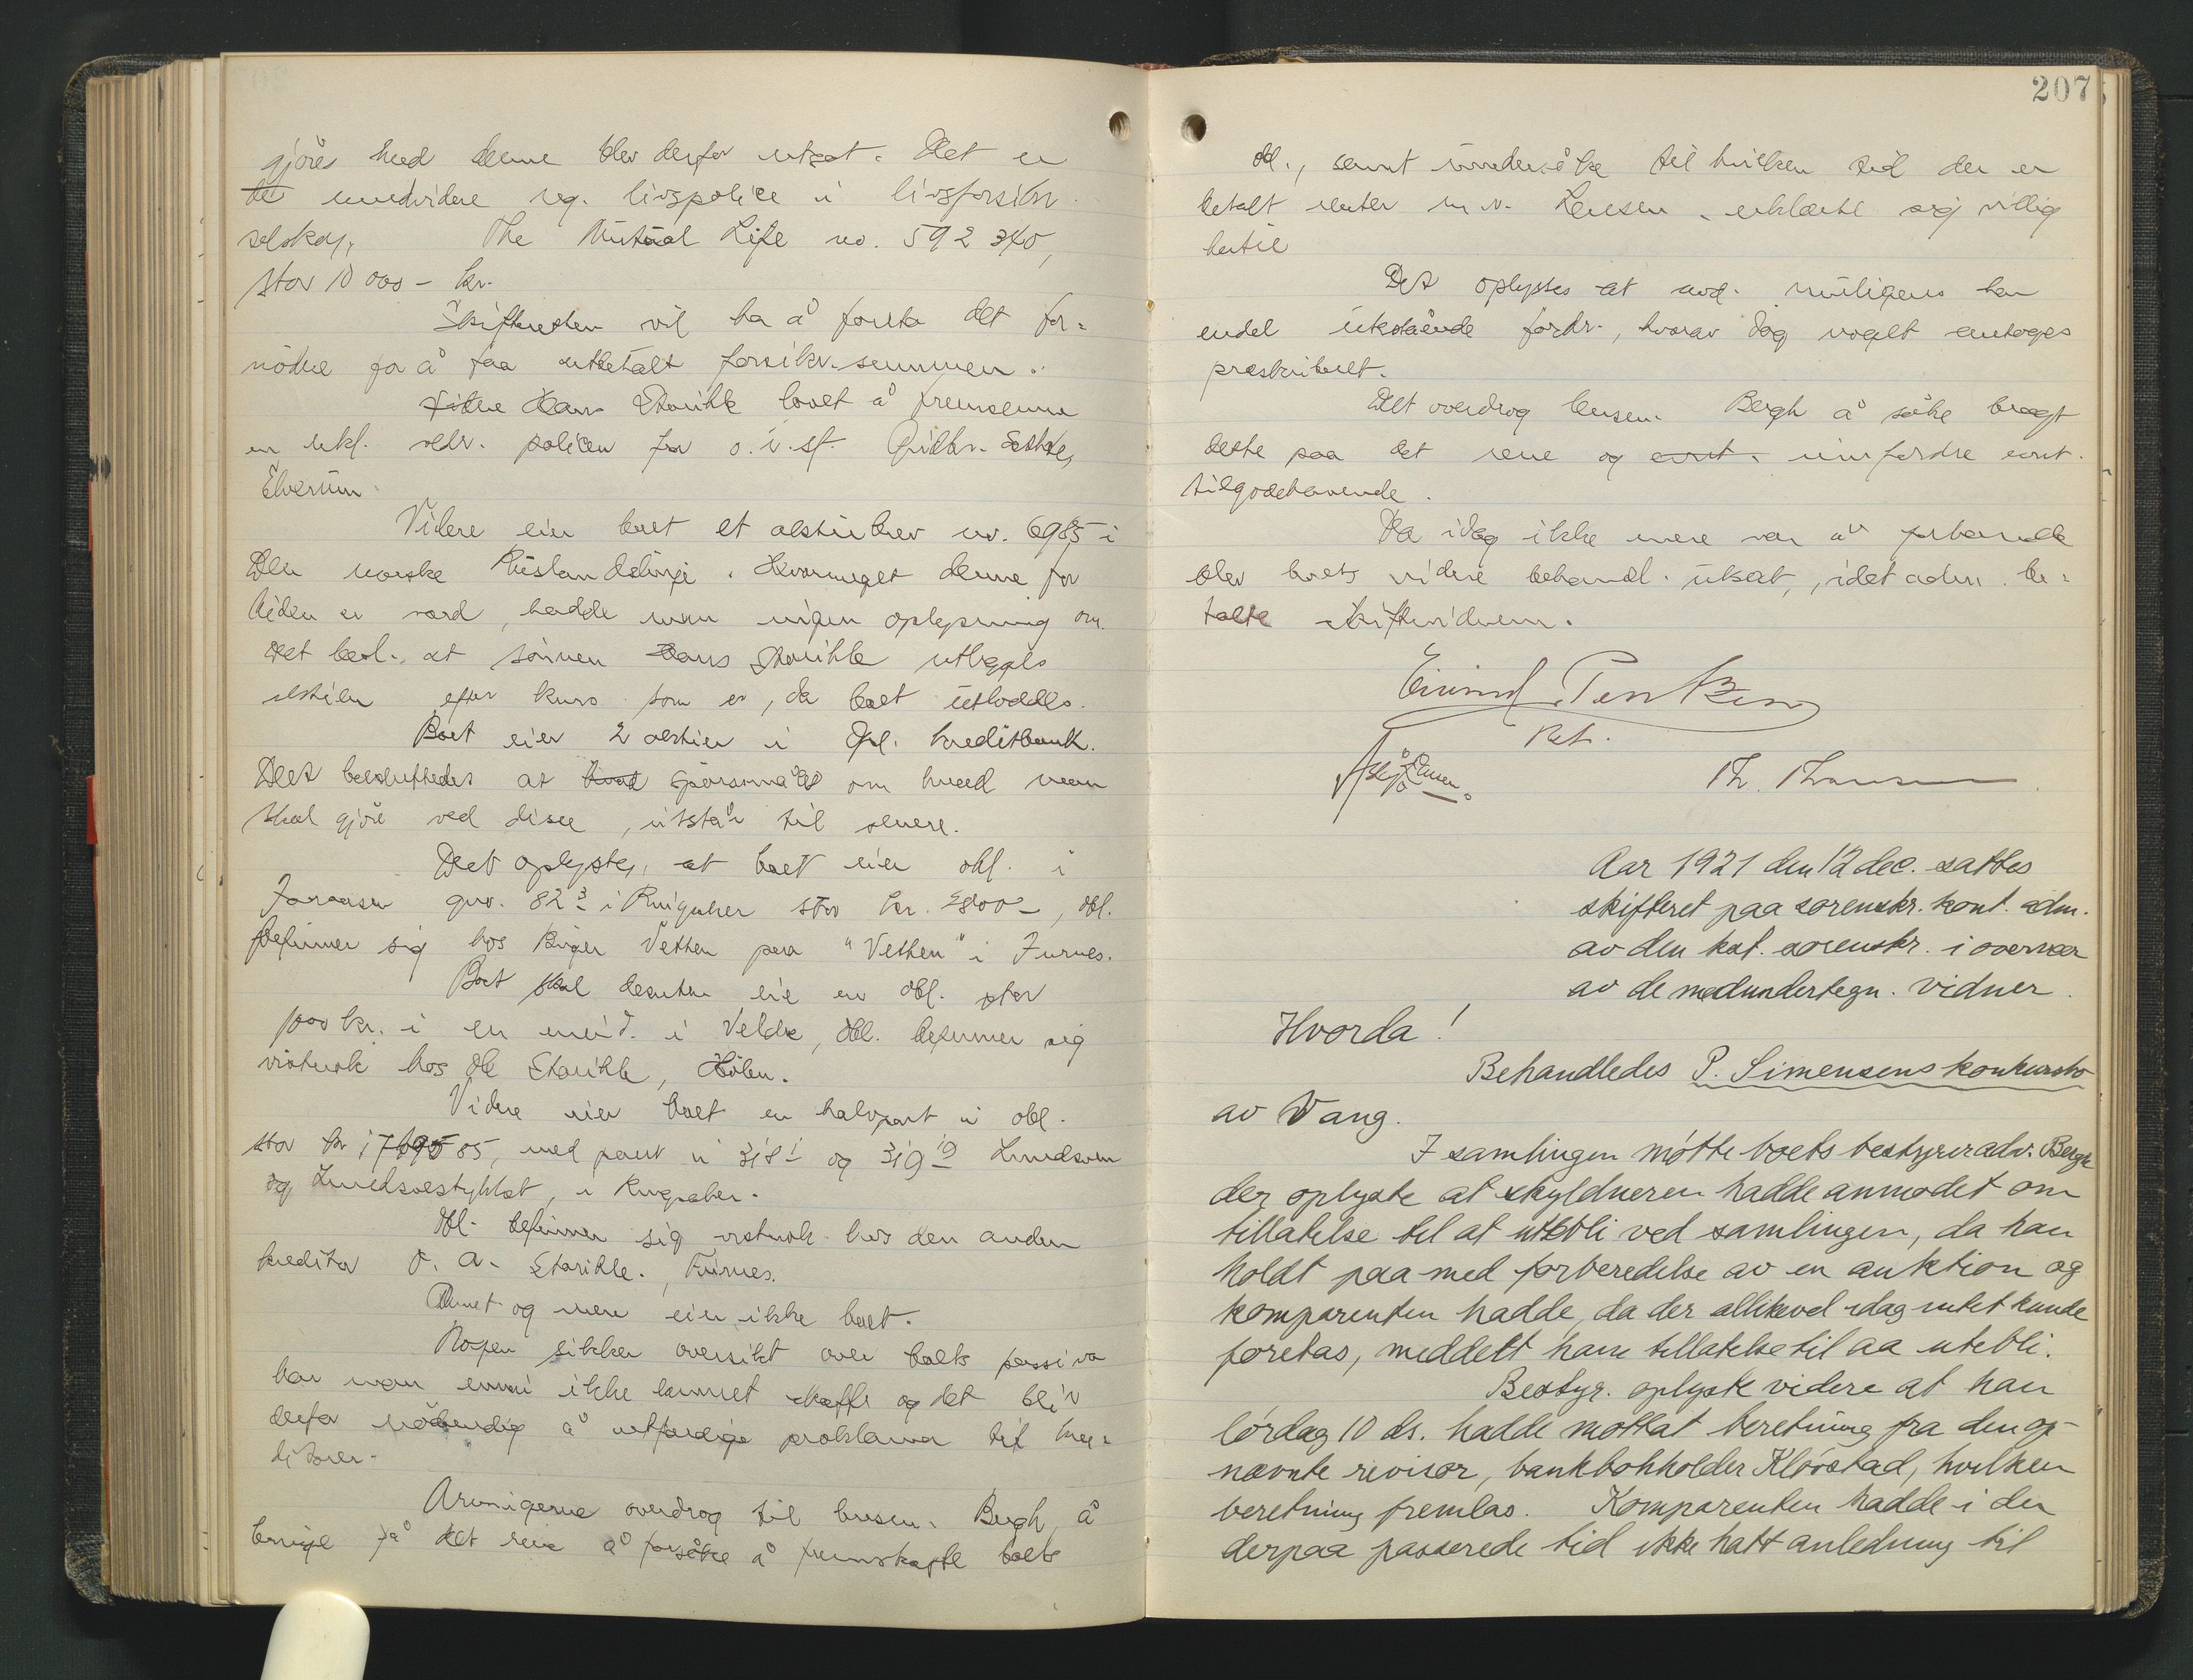 gjöres med denne blev derfor utsat. Det er
de umedvidere reg. livspolice i livsforsikr.
selskap, The Mutual Life no. 592 340,
stor 10 000 - kr.
Skifteretten vil ha å foreta det for-
nödne for å faa utbetalt forsikr.summen.
Hans Storihle lovet å fremsende
en erkl. vedr. policen fra o.r.sf. Gudbr. Sæthre,
Elverum.
Videre eier boet et aktiebrev no. 6985 i
Den norske Ruslandslinje. Hvormeget denne for
tiden er værd, hadde man ingen oplysning om.
Det besl. at sönnen Hans Storihle utlægges
aktien efter kurs som er, da boet utloddes.
Boet eier 2 aktier i Opl. kreditbank.
Det besluttedes at hvad spörsmålet om hvad man
skal gjöre ved disse, utstår til senere.
Det oplystes, at boet eier obl. i
gno. 82³ i Ringsaker stor kr. 2800 -, obl.
befinner sig hos Birger Vethen paa "Vethen" i Furnes.
Boet skal desuten eie en obl. stor
1000 kr. i en eiend. i Veldre, obl. befinner sig
vistnok hos Ole Storihle, Hölen.
Videre eier boet en halvpart i obl.
stor kr 17 85, med pant i 318¹ og 319¹⁹ Lundsveen
og Lundsvestykket, i Ringsaker.
Obl. befinner sig vistnok hos den anden
kreditor O. A. Storihle, Furnes.
Annet og mere eier ikke boet.
Nogen sikker oversikt over boets passiva
har man ennu ikke kunnet skaffe og det blir
derfor nödvendig å utfærdige proklama til kre-
ditorer.
Arvingerne overdrog til bestyr. Bergh å
bringe på det rene å forsöke å fremskaffe boets
207
obl., samt undersöke til hvilken tid der er
betalt renter m.v. erklærte sig villig
hertil
Det oplystes at avd. muligens har
endel utestående fordr., hvorav dog noget antages
præskriberet.
Det overdrog Bergh å söke bragt
dette paa det rene og evnt. innfordre evnt.
tilgodehavende.
Da idag ikke mere var å forhandle
blev boets videre behandl. utsat, idet adm. be-
talte skiftevidnene.
Eivind
kst.
Th. Thomsen
Aar 1921 den 12 dec. sattes
skifteret paa sorenskr. kont. adm.
av den kst. sorenskr. i overvær
av de medundertegn. vidner.
Hvorda!
Behandledes P. Simensens konkursbo
av Vang.
I samlingen møtte boets bestyrer adv. Bergh
der oplyste at skyldneren hadde anmodet om
tillatelse til at utebli ved samlingen, da han
holdt paa med forberedelse av en auktion og
komparenten hadde, da der allikevel idag intet kunde
foretas, meddelt ham tillatelse til aa utebli.
Bestyr. oplyste videre at han
lørdag 10 ds. hadde mottat beretning fra den op-
nævnte revisor, bankbokholder Kløvstad, hvilken
beretning fremlas. Komparenten hadde i den
derpaa passerede tid ikke hatt anledning til